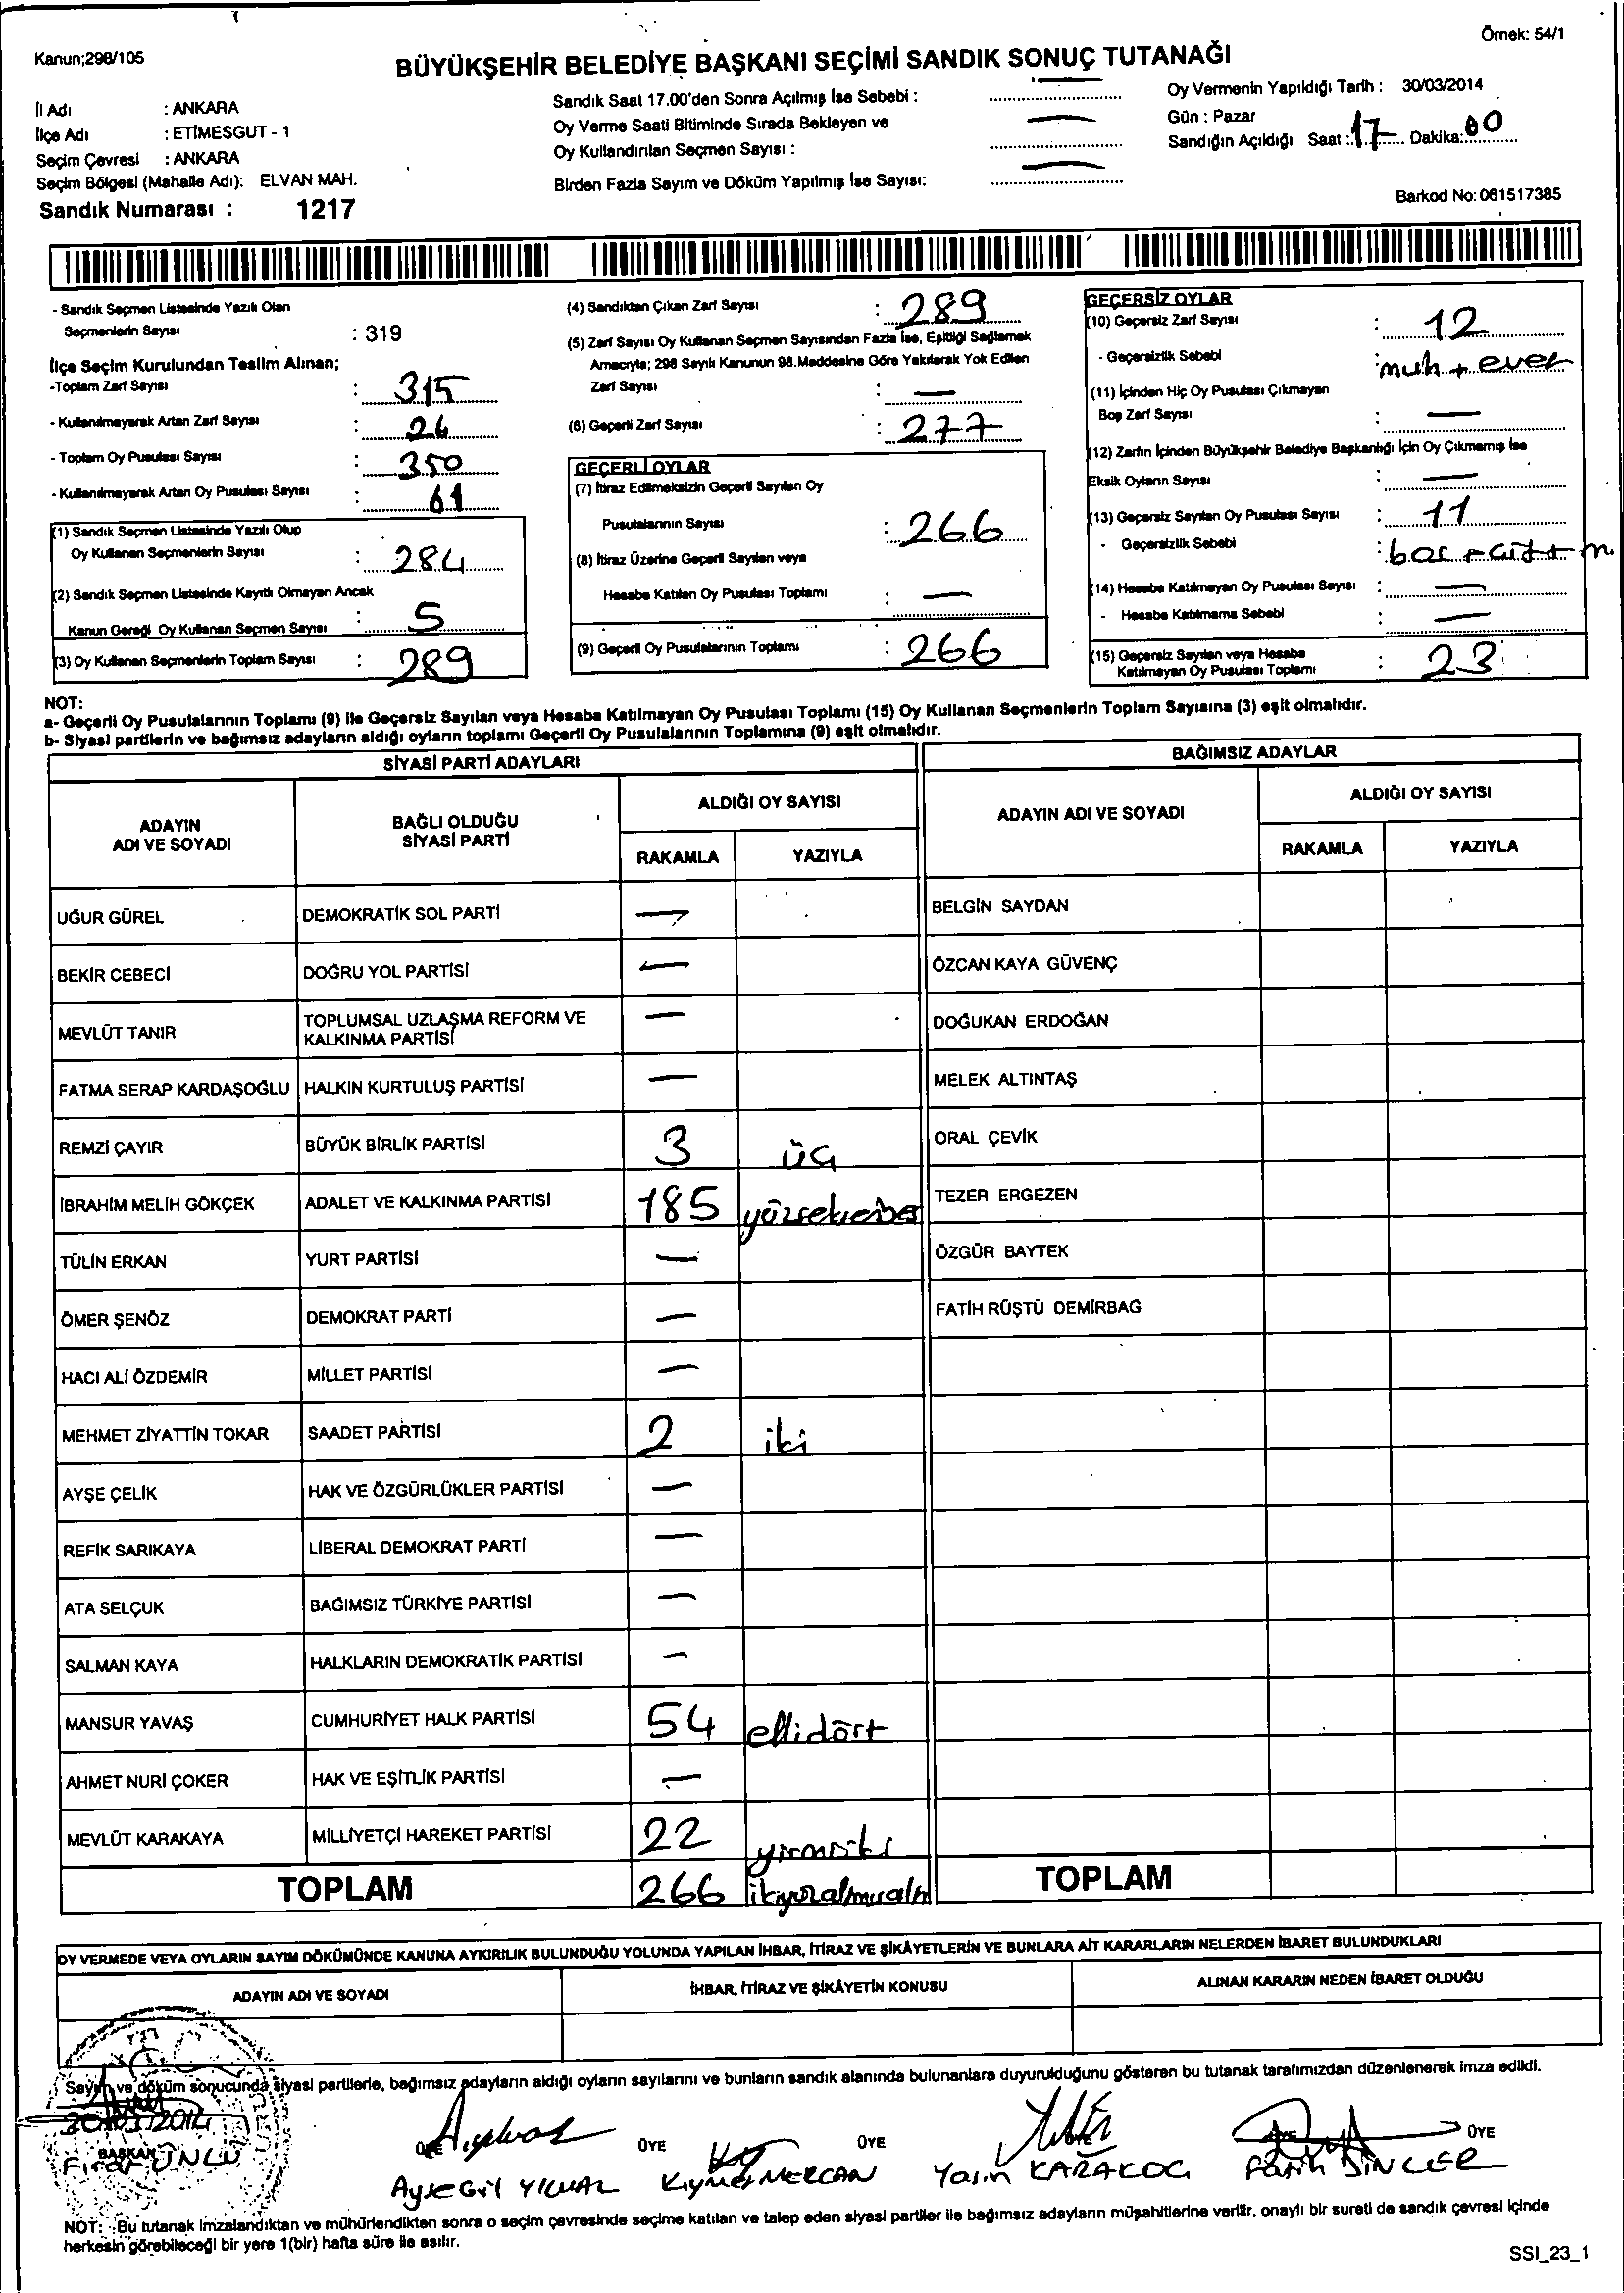 Örnek: 54/1
Kanun;298/105
BÜYÜKŞEHİR BELEDİYE BAŞKANI SEÇİMİ SANDIK SONUÇ TUTANAĞI
İl Adı : ANKARA
İlçe Adı : ETİMESGUT - 1
Seçim Çevresi : ANKARA
Seçim Bölgesi (Mahalle Adı): ELVAN MAH.
Sandık Numarası : 1217
Sandık Saat 17.00'den Sonra Açılmış İse Sebebi : —
Oy Verme Saati Bitiminde Sırada Bekleyen ve
Oy Kullandırılan Seçmen Sayısı : —
Birden Fazla Sayım ve Döküm Yapılmış İse Sayısı: —
Oy Vermenin Yapıldığı Tarih : 30/03/2014
Gün : Pazar
Sandığın Açıldığı Saat : 17 Dakika: 00
Barkod No: 061517385
- Sandık Seçmen Listesinde Yazılı Olan
Seçmenlerin Sayısı : 319
İlçe Seçim Kurulundan Teslim Alınan;
-Toplam Zarf Sayısı : 315
- Kullanılmayarak Artan Zarf Sayısı : 26
- Toplam Oy Pusulası Sayısı : 350
- Kullanılmayarak Artan Oy Pusulası Sayısı : 61
(1) Sandık Seçmen Listesinde Yazılı Olup
Oy Kullanan Seçmenlerin Sayısı : 284
(2) Sandık Seçmen Listesinde Kayıtlı Olmayan Ancak
Kanun Gereği Oy Kullanan Seçmen Sayısı : 5
(3) Oy Kullanan Seçmenlerin Toplam Sayısı : 289
(4) Sandıktan Çıkan Zarf Sayısı : 289
(5) Zarf Sayısı Oy Kullanan Seçmen Sayısından Fazla İse, Eşitliği Sağlamak
Amacıyla; 298 Sayılı Kanunun 98.Maddesine Göre Yakılarak Yok Edilen
Zarf Sayısı : —
(6) Geçerli Zarf Sayısı : 277
GEÇERLİ OYLAR
(7) İtiraz Edilmeksizin Geçerli Sayılan Oy
Pusulalarının Sayısı : 266
(8) İtiraz Üzerine Geçerli Sayılan veya
Hesaba Katılan Oy Pusulası Toplamı : —
(9) Geçerli Oy Pusulalarının Toplamı : 266
GEÇERSİZ OYLAR
(10) Geçersiz Zarf Sayısı : 12
- Geçersizlik Sebebi : muh + evet
(11) İçinden Hiç Oy Pusulası Çıkmayan
Boş Zarf Sayısı : —
(12) Zarfın İçinden Büyükşehir Belediye Başkanlığı İçin Oy Çıkmamış İse
Eksik Oyların Sayısı : —
(13) Geçersiz Sayılan Oy Pusulası Sayısı : 11
- Geçersizlik Sebebi :
(14) Hesaba Katılmayan Oy Pusulası Sayısı : —
- Hesaba Katılmama Sebebi : —
(15) Geçersiz Sayılan veya Hesaba
Katılmayan Oy Pusulası Toplamı : 23
NOT:
a- Geçerli Oy Pusulalarının Toplamı (9) ile Geçersiz Sayılan veya Hesaba Katılmayan Oy Pusulası Toplamı (15) Oy Kullanan Seçmenlerin Toplam Sayısına (3) eşit olmalıdır.
b- Siyasi partilerin ve bağımsız adayların aldığı oyların toplamı Geçerli Oy Pusulalarının Toplamına (9) eşit olmalıdır.
SİYASİ PARTİ ADAYLARI
BAĞIMSIZ ADAYLAR
ADAYIN ADI VE SOYADI
BAĞLI OLDUĞU SİYASİ PARTİ
ALDIĞI OY SAYISI
RAKAMLA YAZIYLA
ADAYIN ADI VE SOYADI
ALDIĞI OY SAYISI
RAKAMLA YAZIYLA
UĞUR GÜREL DEMOKRATİK SOL PARTİ — BELGİN SAYDAN
BEKİR CEBECİ DOĞRU YOL PARTİSİ — ÖZCAN KAYA GÜVENÇ
MEVLÜT TANIR TOPLUMSAL UZLAŞMA REFORM VE KALKINMA PARTİSİ — DOĞUKAN ERDOĞAN
FATMA SERAP KARDAŞOĞLU HALKIN KURTULUŞ PARTİSİ — MELEK ALTINTAŞ
REMZİ ÇAYIR BÜYÜK BİRLİK PARTİSİ 3 üç ORAL ÇEVİK
İBRAHİM MELİH GÖKÇEK ADALET VE KALKINMA PARTİSİ 185 yüzseksenbeş TEZER ERGEZEN
TÜLİN ERKAN YURT PARTİSİ — ÖZGÜR BAYTEK
ÖMER ŞENÖZ DEMOKRAT PARTİ — FATİH RÜŞTÜ DEMİRBAĞ
HACI ALİ ÖZDEMİR MİLLET PARTİSİ —
MEHMET ZİYATTİN TOKAR SAADET PARTİSİ 2 iki
AYŞE ÇELİK HAK VE ÖZGÜRLÜKLER PARTİSİ —
REFİK SARIKAYA LİBERAL DEMOKRAT PARTİ —
ATA SELÇUK BAĞIMSIZ TÜRKİYE PARTİSİ —
SALMAN KAYA HALKLARIN DEMOKRATİK PARTİSİ —
MANSUR YAVAŞ CUMHURİYET HALK PARTİSİ 54 ellidört
AHMET NURİ ÇOKER HAK VE EŞİTLİK PARTİSİ —
MEVLÜT KARAKAYA MİLLİYETÇİ HAREKET PARTİSİ 22 yirmiiki
TOPLAM 266 ikiyüzaltmışaltı TOPLAM
OY VERMEDE VEYA OYLARIN SAYIM DÖKÜMÜNDE KANUNA AYKIRILIK BULUNDUĞU YOLUNDA YAPILAN İHBAR, İTİRAZ VE ŞİKÂYETLERİN VE BUNLARA AİT KARARLARIN NELERDEN İBARET BULUNDUKLARI
ADAYIN ADI VE SOYADI
İHBAR, İTİRAZ VE ŞİKÂYETİN KONUSU
ALINAN KARARIN NEDEN İBARET OLDUĞU
Sayım ve döküm sonucunda siyasi partilerle, bağımsız adayların aldığı oyların sayılarını ve bunların sandık alanında bulunanlara duyurulduğunu gösteren bu tutanak tarafımızdan düzenlenerek imza edildi.
30/03/2014
BAŞKAN ÜYE ÜYE ÜYE ÜYE ÜYE
Fırat ÜNLÜ AyşeGül YILMAZ Kıymet MERCAN Yasin KARAKOÇ Fatih DİNÇER
NOT: Bu tutanak imzalandıktan ve mühürlendikten sonra o seçim çevresinde seçime katılan ve talep eden siyasi partiler ile bağımsız adayların müşahitlerine verilir, onaylı bir sureti de sandık çevresi içinde
herkesin görebileceği bir yere 1(bir) hafta süre ile asılır.
SSI_23_1